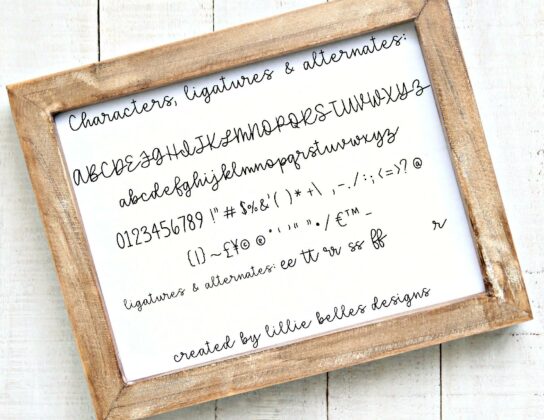 Characters, ligatures & alternates:
ABCDEFGHIJKLMNOPQRSTUVWXYZ
abcdefghijklmnopqrstuvwxyz
0123456789 !" # $%&'( ) * +\ , -. / : ; < = > ? @
{|} ~ £¥© ® ° ‘ ’ “ ” • / €™ –
ligatures & alternates: ee tt rr ss ff r
created by lillie belles designs